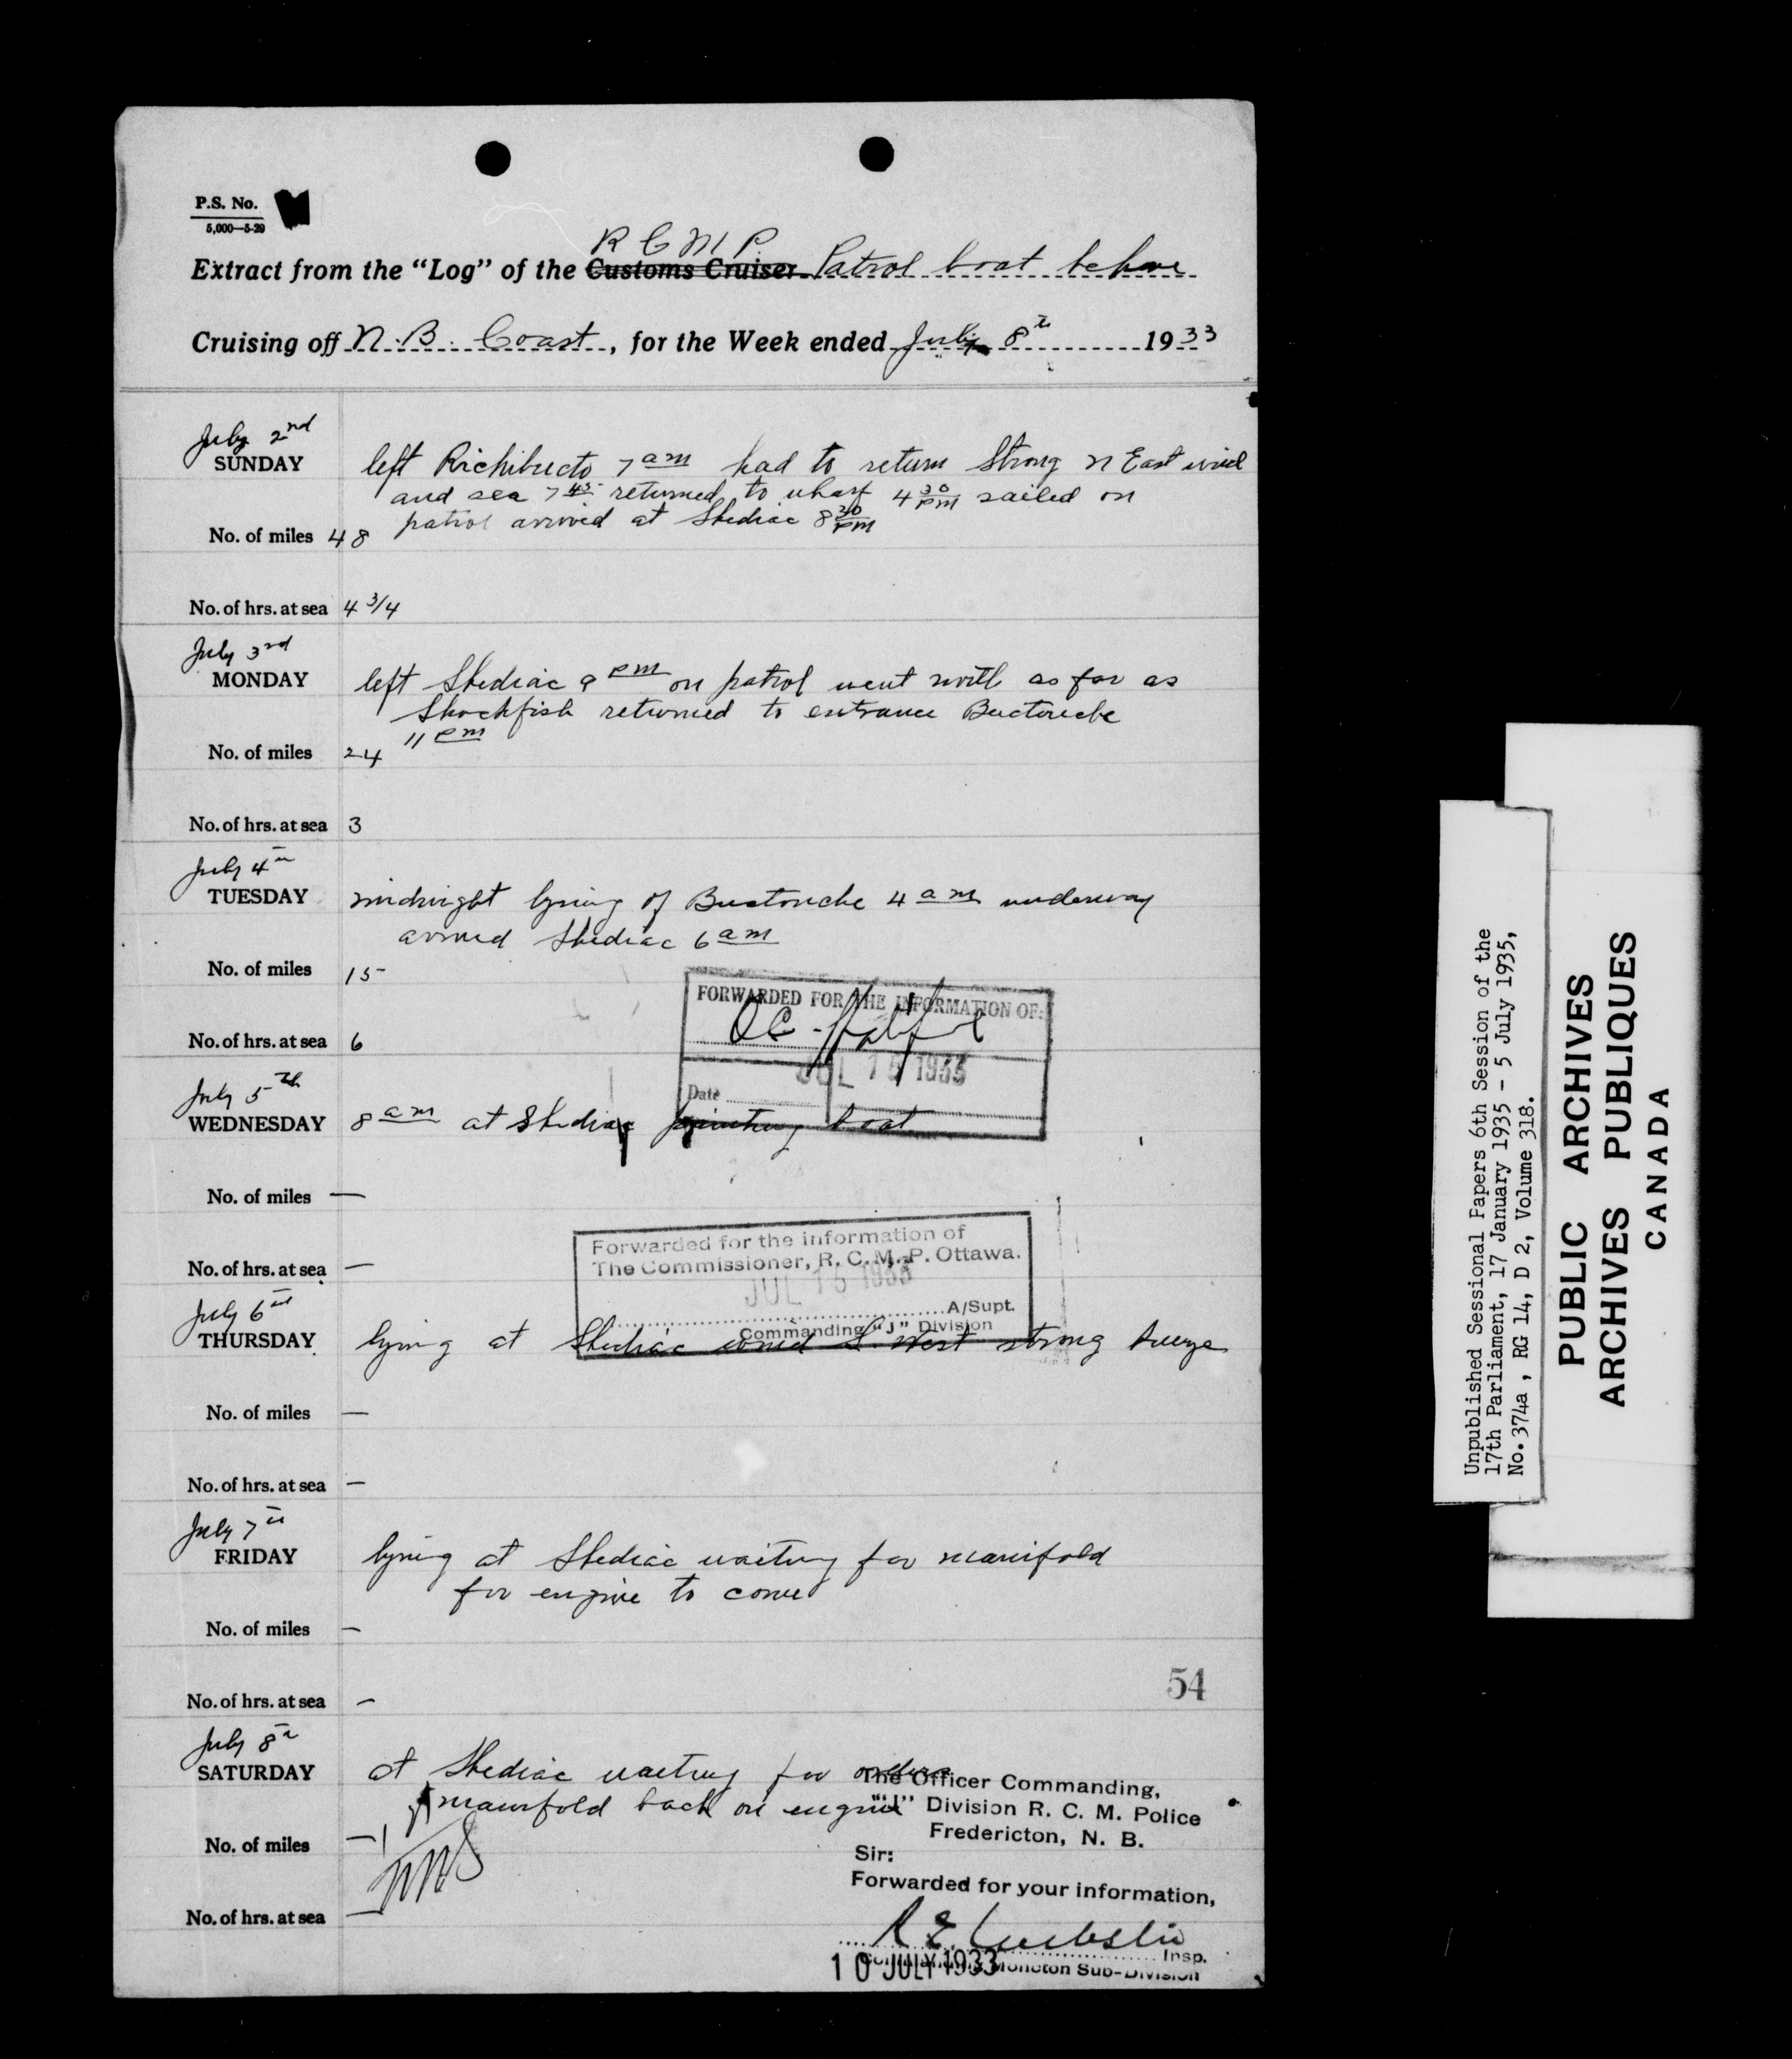 P.S. No.
5,000—5-29
R C M P.
Extract from the "Log" of the Customs Cruiser Patrol boat
Cruising off N.B. Coast, for the Week ended July 8th 1933
July 2nd
SUNDAY
left Richibucto 7 am had to return Strong N East wind
and sea 7 45 returned to wharf 4 30 pm sailed on
patrol arrived at Shediac 8 30 pm
No. of miles 48
No. of hrs. at sea 4 3/4
July 3rd
MONDAY
left Shediac 9 pm on patrol went north as far as
Shockfish returned to entrance Buctouche
11 pm
No. of miles 24
No. of hrs. at sea 3
July 4th
TUESDAY
midnight lying of Buctouche 4 am underway
arrived Shediac 6 am
No. of miles 15
FORWARDED FOR THE INFORMATION OF:
JUL 15 1933
Date
No. of hrs. at sea 6
July 5th
WEDNESDAY
8 am at Shediac painting boat
No. of miles —
Forwarded for the information of
The Commissioner, R. C. M. P. Ottawa.
JUL 15 1933
A/Supt.
Commanding "J" Division
No. of hrs. at sea —
July 6th
THURSDAY
lying at Shediac wind S. West strong breeze
No. of miles —
No. of hrs. at sea —
July 7th
FRIDAY
lying at Shediac waiting for manifold
for engine to come
No. of miles —
54
No. of hrs. at sea —
July 8th
SATURDAY
at Shediac waiting for orders
manifold back on engine
No. of miles —
No. of hrs. at sea —
The Officer Commanding,
"J" Division R. C. M. Police
Fredericton, N. B.
Sir:
Forwarded for your information,
R E
Insp.
Commanding Moncton Sub-Division
10 JULY 1933
Unpublished Sessional Papers 6th Session of the
17th Parliament, 17 January 1935 - 5 July 1935,
No.374a , RG 14, D 2, Volume 318.
PUBLIC ARCHIVES
ARCHIVES PUBLIQUES
CANADA